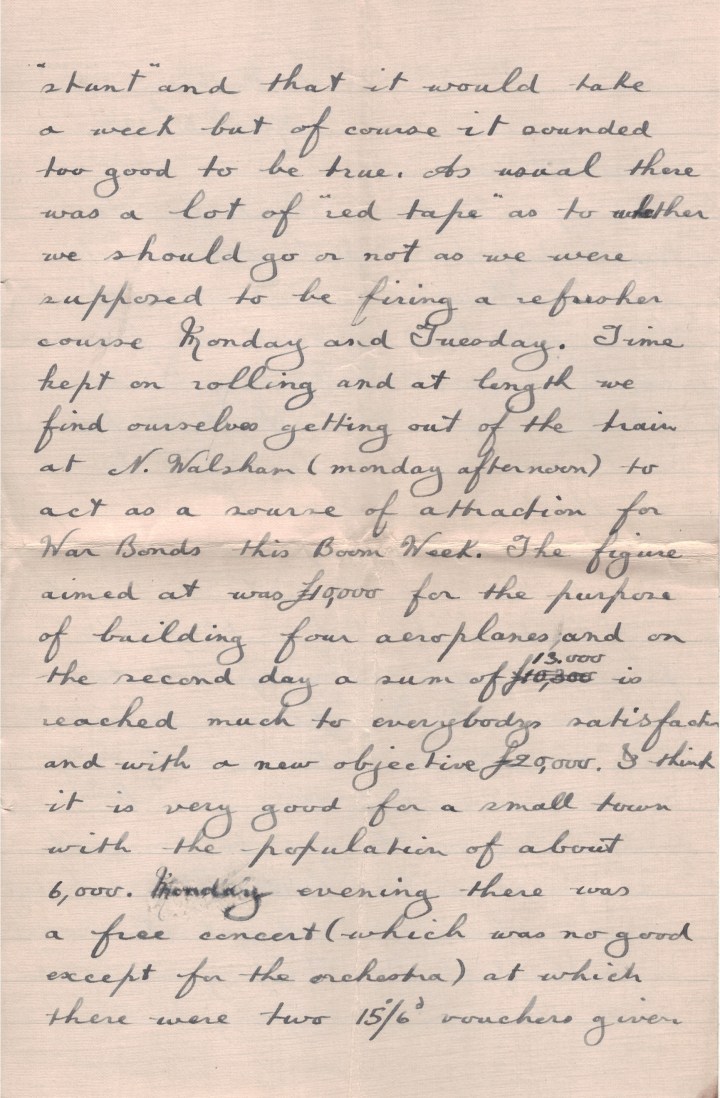 "stunt" and that it would take
a week but of course it sounded
too good to be true. As usual there
was a lot of "red tape" as to whether
we should go or not as we were
supposed to be firing a refresher
course Monday and Tuesday. Time
kept on rolling and at length we
find ourselves getting out of the train
at N. Walsham (monday afternoon) to
act as a sourse of attraction for
War Bonds this Boom Week. The figure
aimed at was £10,000 for the purpose
of building four aeroplanes, and on
the second day a sum of £10,300 13.000 is
reached much to everybodys satisfactn
and with a new objective £20,000. I think
it is very good for a small town
with the population of about
6,000. Monday evening there was
a free concert (which was no good
except for the orchestra) at which
there were two 15/6d vouchers given